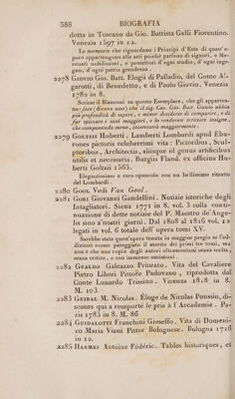 388 BIOGRAFIA
dotta in Toscano da Gio. Battista Gelli Fiorentino.
Venezia 1597 in 12.
Le memorie che riguardano i Principi d'Este di quest'o-
pera appartengono alle arti poichè parlano di signori, e Me-
cenati nobilissimi, e protettori d'ogni studio, d'ogni inge-
gno, d'ogni patria grandezza.
2278 Giovio Gio. Batt. Elogii di Palladio, del Conte Al-
garotti, di Benedetto, e di Paolo Giovio. Venezia
1782 in 8.
più profondità di sapere, e minor desiderio di comparire, e di
far spiccare i suoi maggiori, e in renderne evidente insigne,
che componendo meno, interessarà maggiormente.
2279 Goltzii Huberti: Lamberti Lombardi apud Ebu-
rones pictoris celeberrimi vita: Pictoribus, Scul-
ptoribus, Architectis, aliisque id genus artificibus
utilis et necessaria. Burgis Fland. ex officina Hu-
berti Goltzii 1565.
Elegantissimo e raro opuscolo con un bellissimo ritratto
del Lombardi.
2280 Gool Vedi Van Gool.
2281 Gori Giovanni Gandellini. Notizie istoriche degli
Intagliatori. Siena 1771 in 8. vol. 3 colla conti-
nuazione di dette notizie del P. Maestro de Ange-
lis sino a'nostri giorni. Dal 1808 al 1816 vol. 12
legati in vol. 6 totale dell'opera tomi XV.
Sarebbe stata quest'opera tenuta in maggior pregio se l'e-
dizione avesse pareggiato il merito dei primi tre tomi, ma
non è che una copia degli autori oltremontani senza scelta,
senza critica, e con immense omissioni.
2282 Gualdo Galeazzo Priorato. Vita del Cavaliere
Pietro Liberi Pittore Padovano, riprodotta dal
Conte Lunardo Trissino. Vicenza 1818 in 8.
M. 103
2283 Guibal M. Nicolas. Éloge de Nicolas Poussin, di-
scours qui a remporté le prix à l'Academie. Pa-
ris 1783 in 8. M. 86
2284 Guidalotti Franchini Gioseffo, Vita di Domeni-
co Maria Viani Pittor Bolognese. Bologna 1716
in 12.
2285 Harms Antoine Fédéric. Tables historiques, et